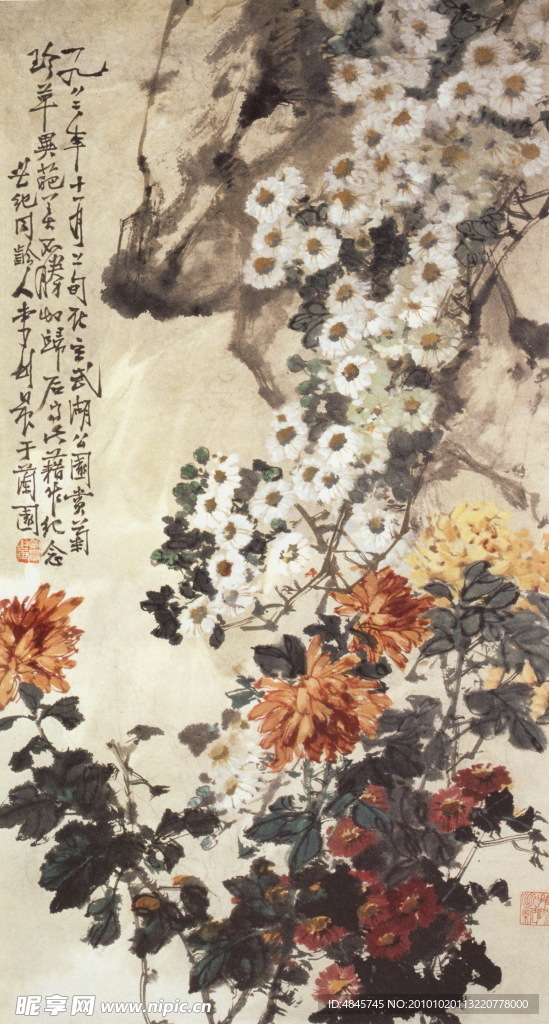 一九八三年十一月上旬在玄武湖公园赏菊
珍草异葩美不胜收归后写此藉作纪念
世纪同龄人李
于兰园
昵享网 www.nipic.cn
ID:4845745 NO:20101020113220778000